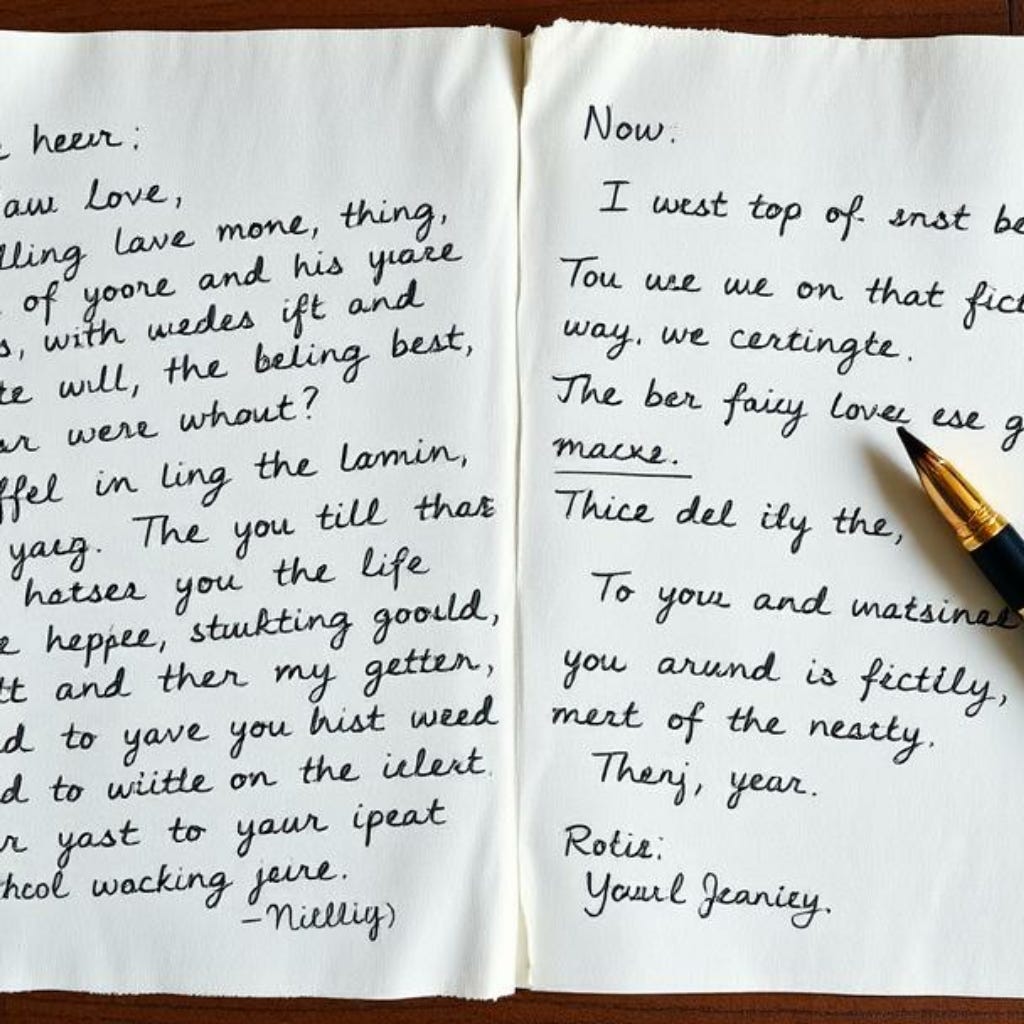 heeur:
aw Love,
lling lave mone, thing,
of yoore and his yuare
s, with wedes ift and
te will, the beling best,
ar were whout?
ffel in ling the lamin,
yaug. The you till that
hatsea you the life
e heppee, stuuktting goould,
tt and ther my getten,
d to yave you hist weed
d to wiittle on the iclert.
r yast to yaur ipeat
hcol wacking jeire.
-Nielliy)
Now:
I west top of snst be
Tou use we on that fict
way. we certingte.
The ber faicy lovee ese g
macxe.
Thice del ily the,
To your and matsinae
you arund is fictily,
mert of the nescty.
Thenj, year.
Rotie:
Youul Jeaniey.